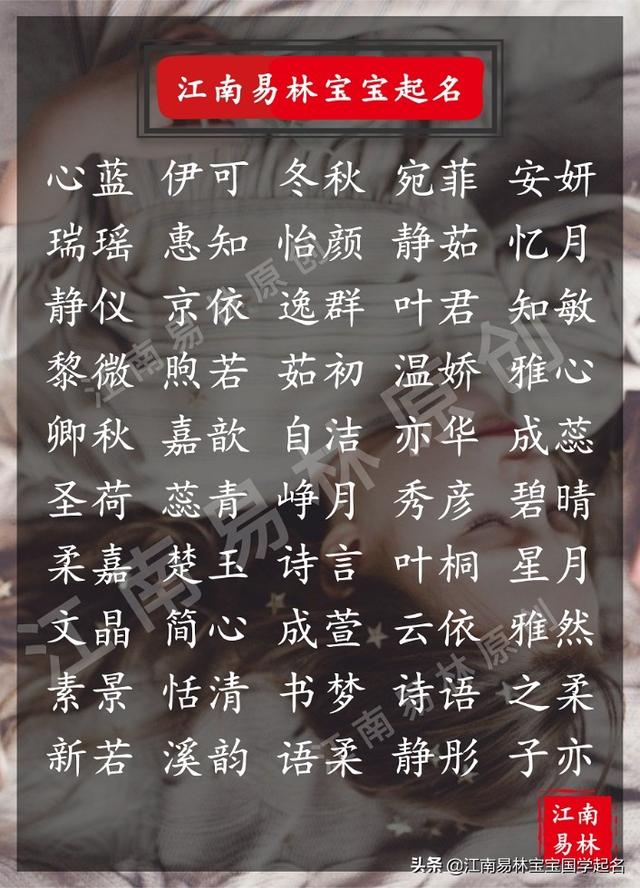 江南易林宝宝起名
心蓝 伊可 冬秋 宛菲 安妍
瑞瑶 惠知 怡颜 静茹 忆月
静仪 京依 逸群 叶君 知敏
黎微 煦若 茹初 温娇 雅心
卿秋 嘉歆 自洁 亦华 成蕊
圣荷 蕊青 峥月 秀彦 碧晴
柔嘉 楚玉 诗言 叶桐 星月
文晶 简心 成萱 云依 雅然
素景 恬清 书梦 诗语 之柔
新若 溪韵 语柔 静彤 子亦
江南易林原创
江南易林原创
江南易林原创
江南
易林
头条 @江南易林宝宝国学起名